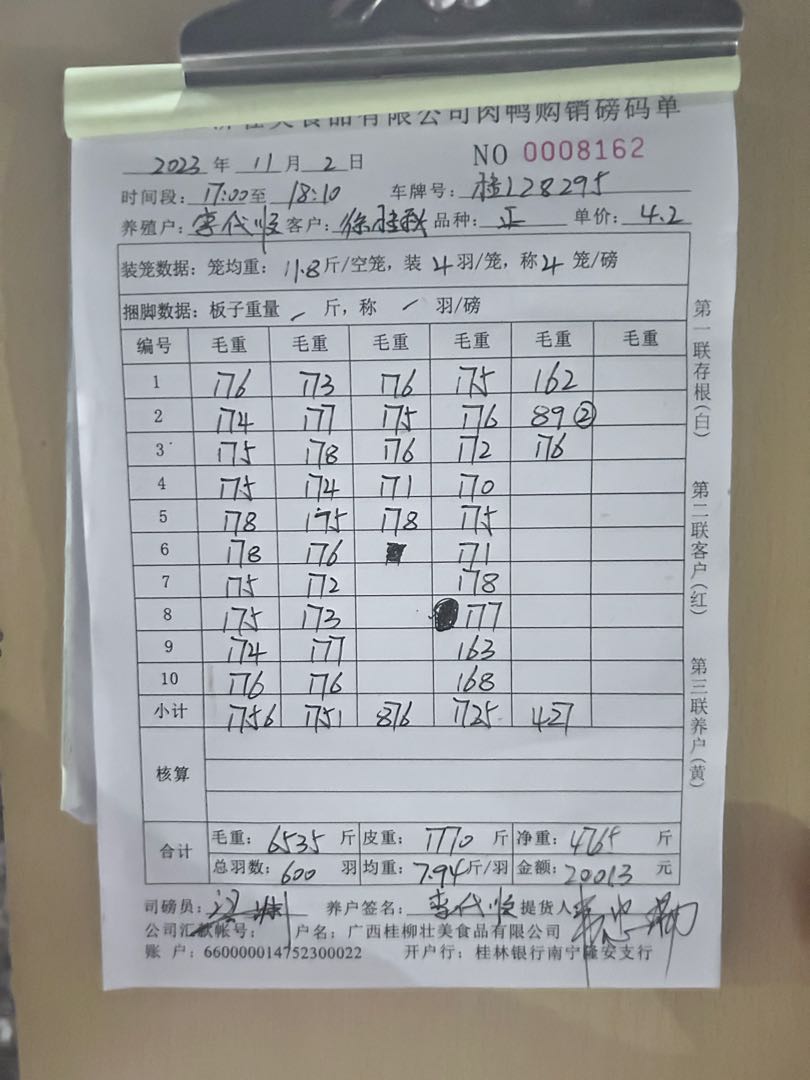 壮美食品有限公司肉鸭购销磅码单
2023 年 11 月 2 日 NO 0008162
时间段: 17:00 至 18:10 车牌号: 桂128295
养殖户: 李代顺 客户: 徐桂秋 品种: 正 单价: 4.2
装笼数据: 笼均重: 11.8 斤/空笼, 装 4 羽/笼, 称 4 笼/磅
捆脚数据: 板子重量 / 斤, 称 / 羽/磅
编号 毛重 毛重 毛重 毛重 毛重 毛重
1 176 173 176 175 162
2 174 177 175 176 89 ②
3 175 178 176 172 176
4 175 174 171 170
5 178 175 178 175
6 178 176 171
7 175 172 178
8 175 173 177
9 174 177 163
10 176 176 168
小计 1756 1751 876 1725 427
核算
合计 毛重: 6535 斤 皮重: 1770 斤 净重: 4765 斤
总羽数: 600 羽 均重: 7.94 斤/羽 金额: 20013 元
司磅员: 养户签名: 李代顺 提货人
公司汇款帐号: 户名: 广西桂柳壮美食品有限公司
账 户: 660000014752300022 开户行: 桂林银行南宁隆安支行
第一联存根(白)
第二联客户(红)
第三联养户(黄)